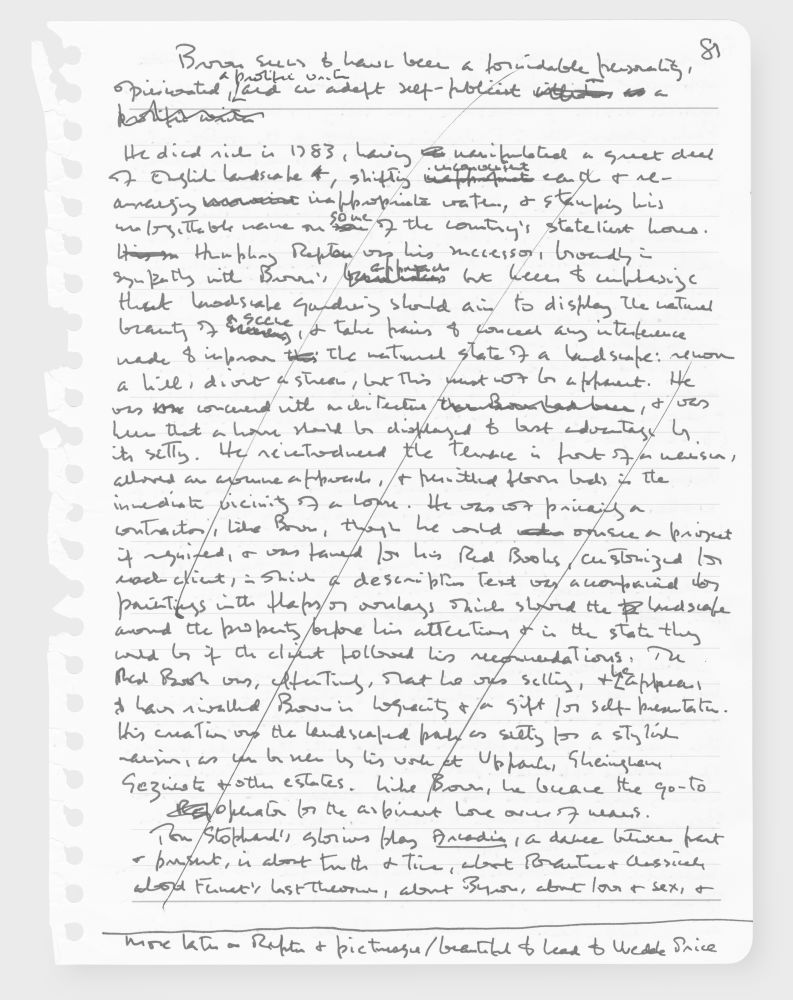 81
Brown seems to have been a formidable personality,
a prolific writer
opinionated, and an adept self-publicist without as a
prolific writer
He died rich in 1783, having manipulated a great deal
inconvenient
of English landscape, shifting inappropriate earth & re-
arranging inappropriate water, & stamping his
some
unforgettable name on of the country's stateliest homes.
Humphry Repton was his successor, broadly in
approach
sympathy with Brown's but keen to emphasize
that landscape gardening should aim to display the natural
a scene
beauty of scenery, & take pains to conceal any interference
made to improve the natural state of a landscape: remove
a hill, divert a stream, but this must not be apparent. He
was concerned with architecture than Brown had been, & was
keen that a house should be displayed to best advantage by
its setting. He reintroduced the terrace in front of a mansion,
allowed an avenue approach, & permitted flower beds in the
immediate vicinity of a house. He was not primarily a
contractor, like Brown, though he would oversee a project
if required, & was famed for his Red Books, customized for
each client, in which a descriptive text was accompanied by
paintings with flaps or overlays which showed the landscape
around the property before his attentions & in the state they
would be if the client followed his recommendations. The
Red Book was, effectively, what he was selling, &
he
appears
to have rivalled Brown in loquacity & a gift for self-presentation.
His creation was the landscaped park as setting for a stylish
mansion, as can be seen by his work at Uppark, Sheringham,
Sezincote & other estates. Like Brown, he became the go-to
operator for the aspirant home owner of means.
Tom Stoppard's glorious play Arcadia, a dance between past
& present, is about truth & time, about Romantic & Classical,
about Fermat's last theorem, about Byron, about love & sex, &
More later on Repton & picturesque/beautiful to lead to Uvedale Price